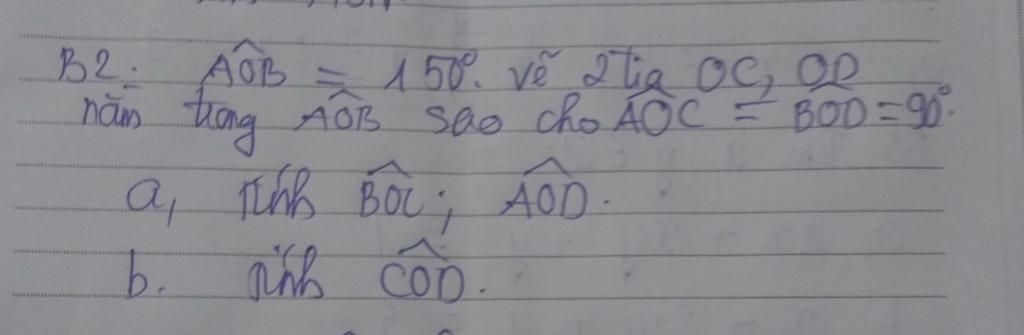 B2: AÔB = 150°. vẽ 2 tia OC, OD
nằm trong AÔB sao cho AÔC = BÔD = 90°.
a, tính BÔC; AÔD.
b. tính CÔD.